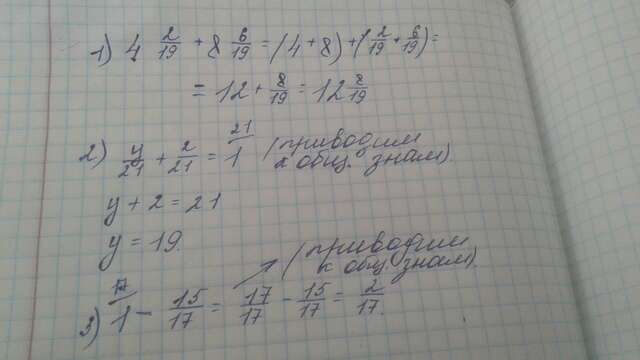 1) 4 2/19 + 8 6/19 = (4 + 8) + (2/19 + 6/19) =
= 12 + 8/19 = 12 8/19
2) y/21 + 2/21 = 21/1 (приводим
к общ. знам).
y + 2 = 21
y = 19.
(приводим
к общ. знам).
3) 17/1 - 15/17 = 17/17 - 15/17 = 2/17.